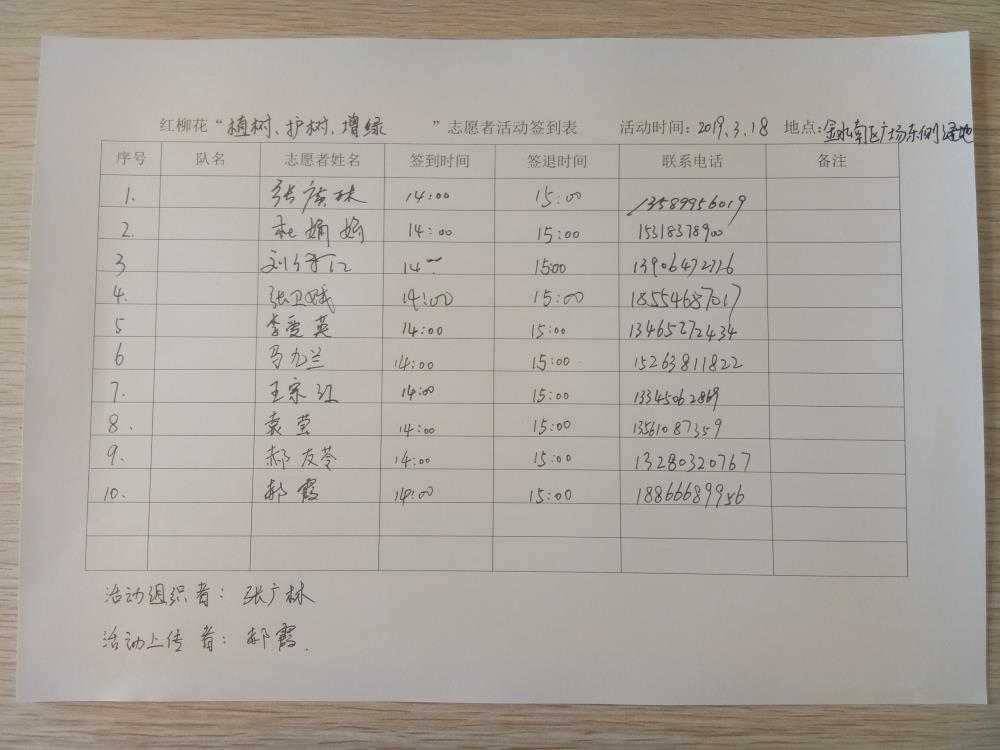 红柳花“植树、护树、增绿”志愿者活动签到表 活动时间：2019.3.18 地点：金水南区广场东侧绿地
序号 队名 志愿者姓名 签到时间 签退时间 联系电话 备注
1. 张广林 14:00 15:00 13589956019
2. 杜娟娟 14:00 15:00 15318378900
3 刘 14 15:00 13906472776
4. 张卫娥 14:00 15:00 18554687017
5 李爱英 14:00 15:00 13465272434
6 马九兰 14:00 15:00 15263811822
7. 王宗红 14:00 15:00 13345062869
8. 袁莹 14:00 15:00 13561087359
9. 郝友苓 14:00 15:00 13280320767
10. 郝霞 14:00 15:00 18866689956
活动组织者：张广林
活动上传者：郝霞.